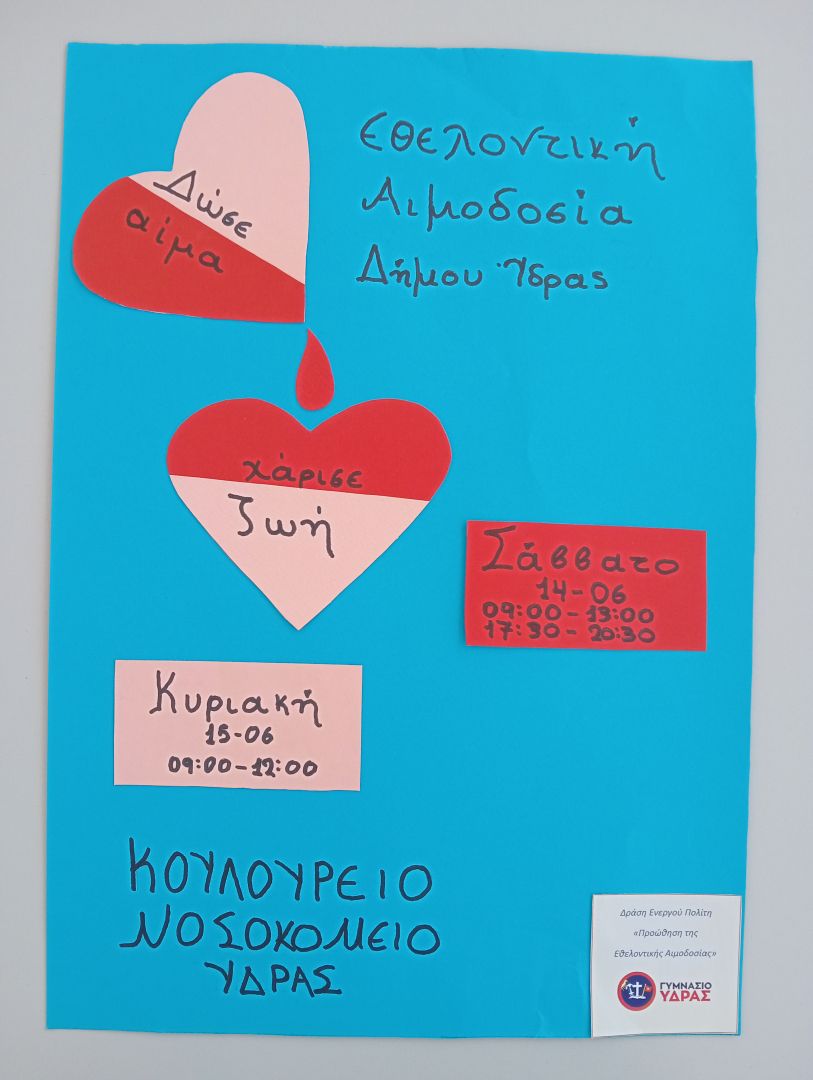 Εθελοντική
Αιμοδοσία
Δήμου Ύδρας
Δώσε
αίμα
χάρισε
ζωή
Σάββατο
14-06
09:00-13:00
17:30-20:30
Κυριακή
15-06
09:00-12:00
ΚΟΥΛΟΥΡΕΙΟ
ΝΟΣΟΚΟΜΕΙΟ
ΥΔΡΑΣ
Δράση Ενεργού Πολίτη
«Προώθηση της
Εθελοντικής Αιμοδοσίας»
ΓΥΜΝΑΣΙΟ
ΥΔΡΑΣ